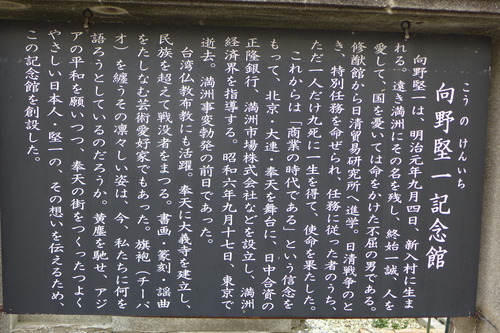 こうのけんいち
向野堅一記念館
向野堅一は、明治元年九月四日、新入村に生ま
れる。遠き満洲にその名を残し、終始一誠、人を
愛して、国を憂いては命をかけた不屈の男である。
修猷館から日清貿易研究所へ進学。日清戦争のと
き、特別任務を命ぜられ、任務に従った者のうち、
ただ一人だけ九死に一生を得て、使命を果たした。
これからは「商業の時代である」という信念を
もって、北京・大連・奉天を舞台に、日中合資の
正隆銀行、満洲市場株式会社などを設立し、満洲
経済界を指導する。昭和六年九月十七日、東京で
逝去。満洲事変勃発の前日であった。
台湾仏教布教にも活躍。奉天に大義寺を建立し、
民族を超えて戦没者をまつる。書画・篆刻、謡曲
をたしなむ芸術愛好家でもあった。旗袍(チーパ
オ)を纏うその凛々しい姿は、今、私たちに何を
語ろうとしているのだろうか。黄塵を馳せ、アジ
アの平和を願いつつ、奉天の街をつくったつよく
やさしい日本人・堅一の、その想いを伝えるため、
この記念館を創設した。